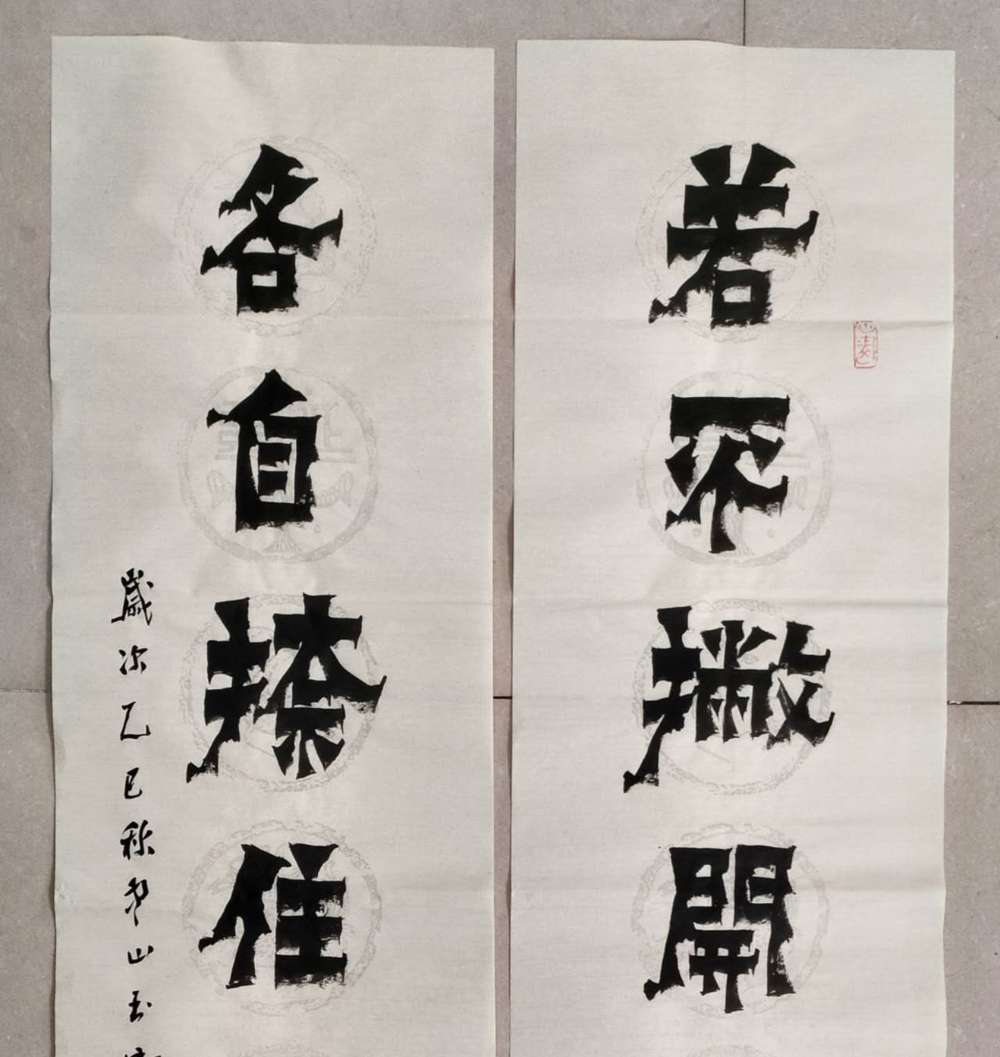 若不撇開
各自捺住
歲次乙巳秋山玉